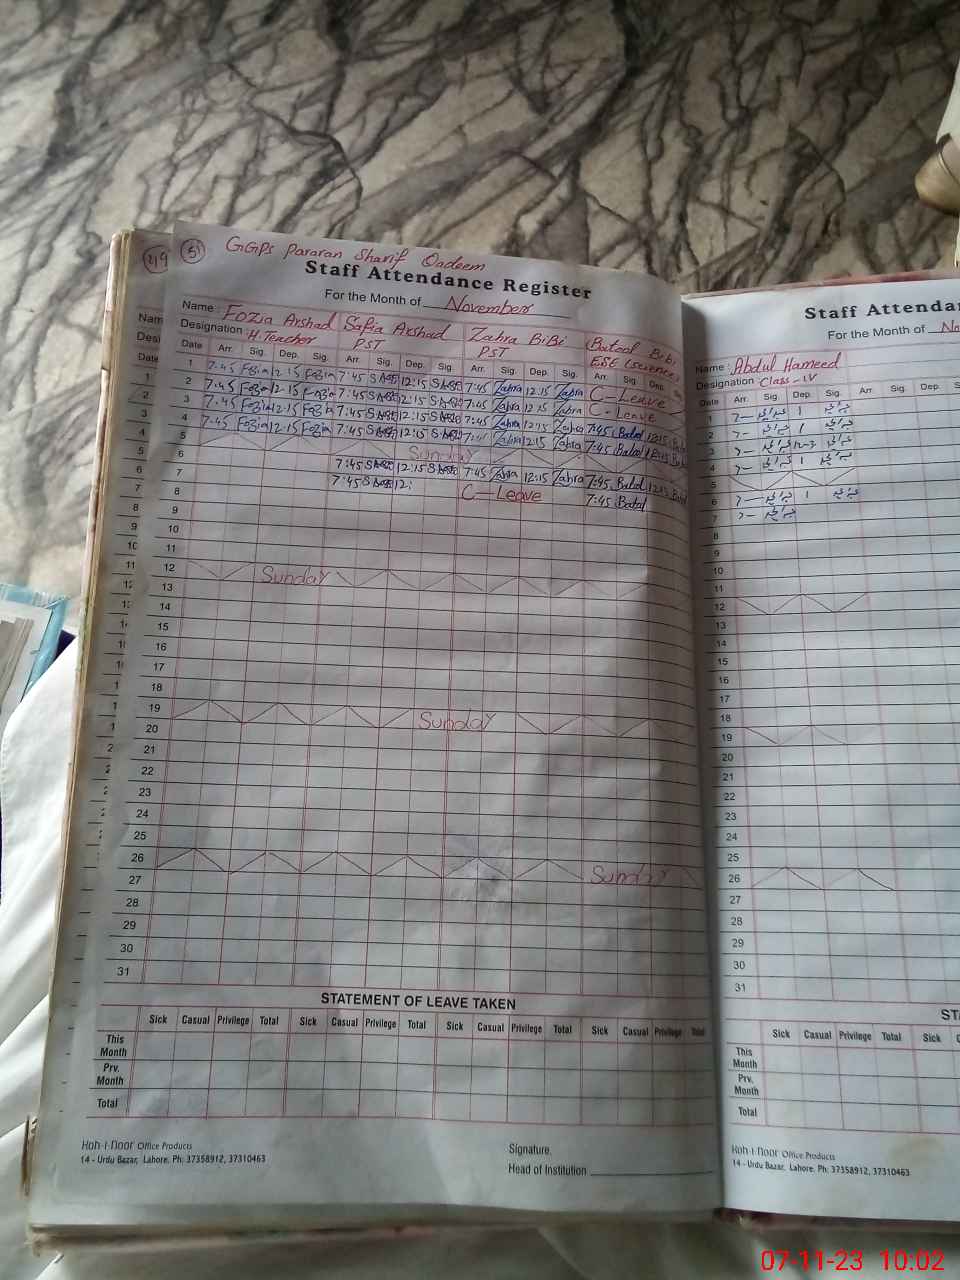 49
51
GGPS Pararan Sharif Qadeem
Staff Attendance Register
For the Month of November
Name : Fozia Arshad Safia Arshad Zahra BiBi Batool Bibi
Designation : H.Teacher PST PST ESE (science)
Date Arr. Sig. Dep. Sig. Arr. Sig. Dep. Sig. Arr. Sig. Dep. Sig. Arr. Sig. Dep.
1 7:45 Fozia 12:15 Fozia 7:45 12:15 7:45 Zahra 12:15 Zahra C-Leave
2 7:45 Fozia 12:15 Fozia 7:45 12:15 7:45 Zahra 12:15 Zahra C-Leave
3 7:45 Fozia 12:15 Fozia 7:45 12:15 7:45 Zahra 12:15 Zahra 7:45 Batol 12:15
4 7:45 Fozia 12:15 Fozia 7:45 12:15 7:45 Zahra 12:15 Zahra 7:45 Batol 12:15
5 Sunday
6 7:45 12:15 7:45 Zahra 12:15 Zahra 7:45 Batol 12:15
7 7:45 12: C-Leave 7:45 Batol
8
9
10
11
12 Sunday
13
14
15
16
17
18
19 Sunday
20
21
22
23
24
25
26 Sunday
27
28
29
30
31
STATEMENT OF LEAVE TAKEN
Sick Casual Privilege Total Sick Casual Privilege Total Sick Casual Privilege Total Sick Casual Privilege Total
This Month
Prv. Month
Total
Koh-i-Noor Office Products
14 - Urdu Bazar, Lahore. Ph: 37358912, 37310463
Signature.
Head of Institution
Staff Attendan
For the Month of No
Name : Abdul Hameed
Designation Class-IV
Date Arr. Sig. Dep. Sig. Arr. Sig. Dep.
1
2
3
4
5
6
7
8
9
10
11
12
13
14
15
16
17
18
19
20
21
22
23
24
25
26
27
28
29
30
31
Sick Casual Privilege Total Sick
This Month
Prv. Month
Total
Koh-i-Noor Office Products
14 - Urdu Bazar, Lahore. Ph: 37358912, 37310463
07-11-23 10:02